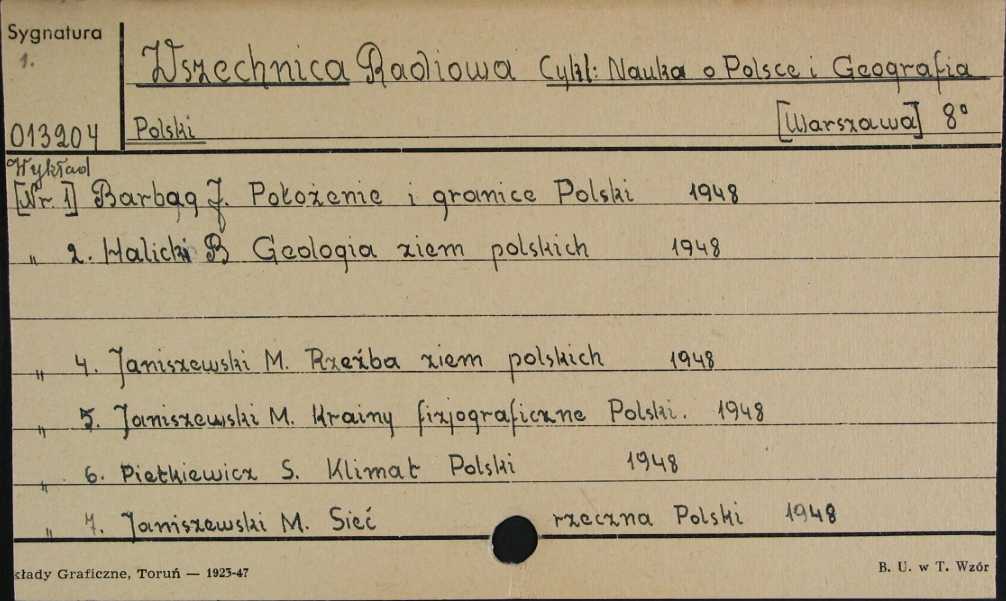 Sygnatura
1.
Wszechnica Radiowa Cykl: Nauka o Polsce i Geografia
013204 Polski [Warszawa] 8°
Wykład
[Nr. 1] Barbag J. Położenie i granice Polski 1948
" 2. Halicki B Geologia ziem polskich 1948
" 4. Janiszewski M. Rzeźba ziem polskich 1948
" 5. Janiszewski M. Krainy fizjograficzne Polski. 1948
" 6. Pietkiewicz S. Klimat Polski 1948
" 7. Janiszewski M. Sieć rzeczna Polski 1948
kłady Graficzne, Toruń — 1925-47 B. U. w T. Wzór